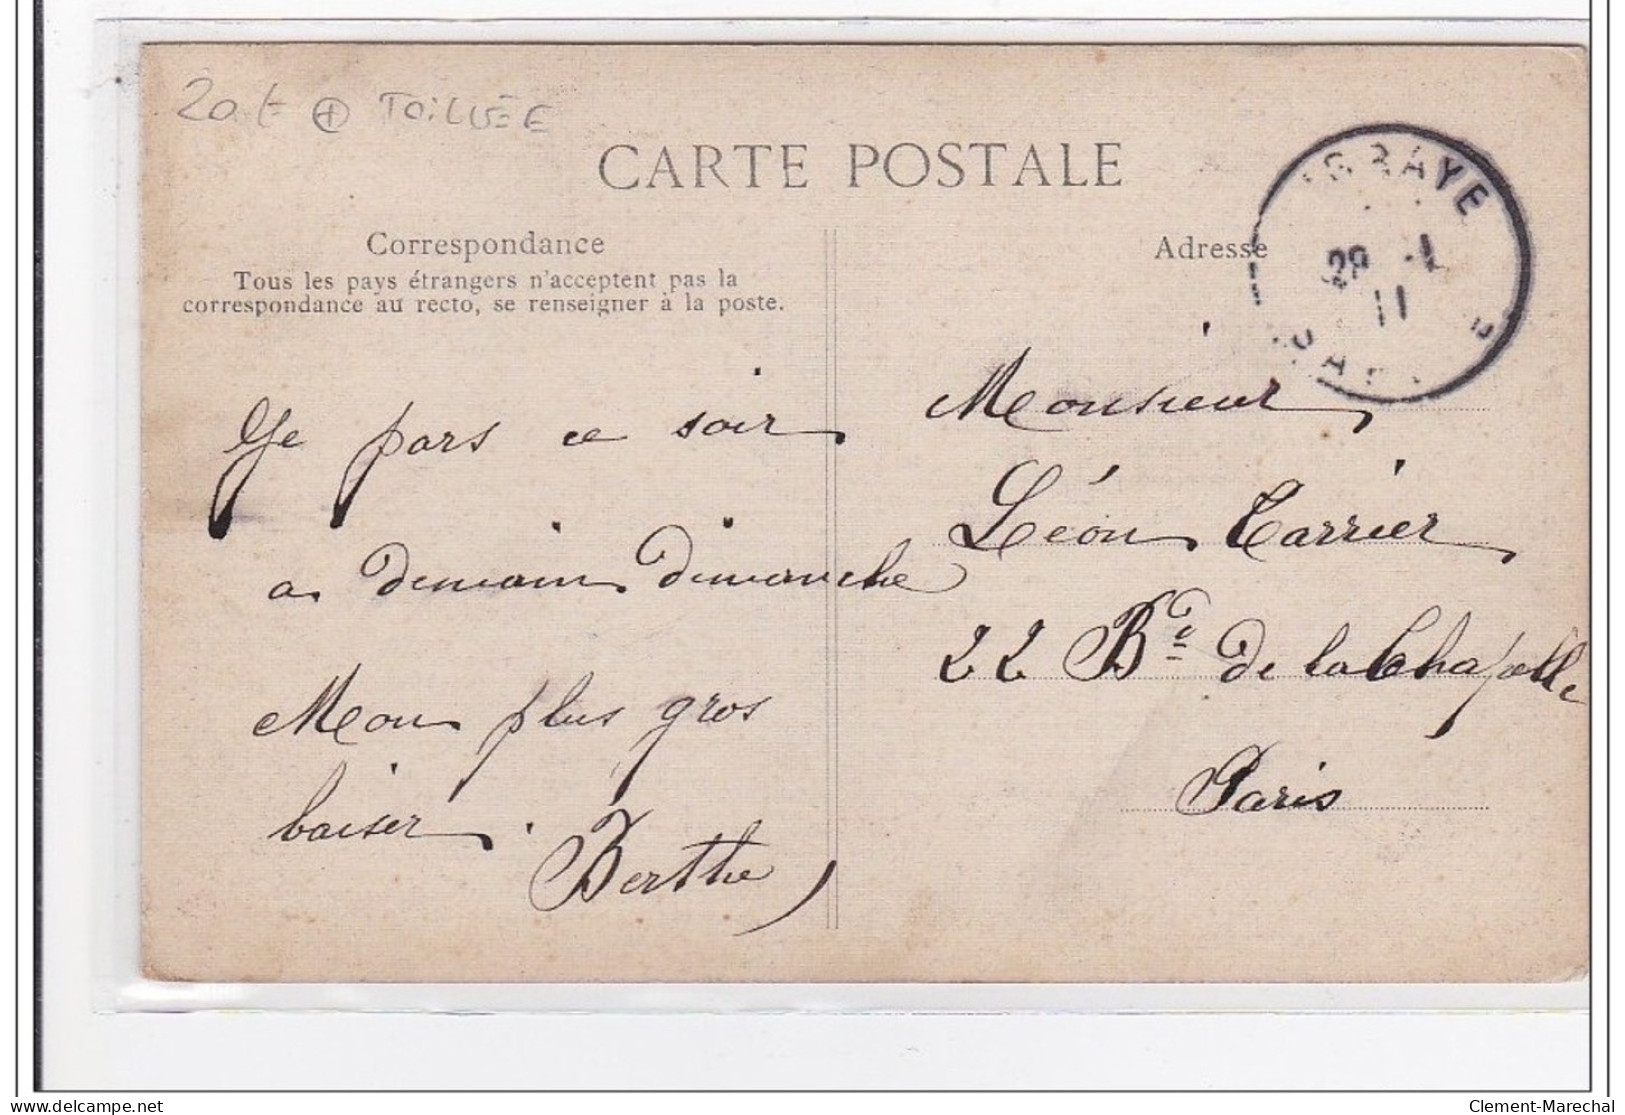 20t + TOILLÉE
CARTE POSTALE
Correspondance
Tous les pays étrangers n'acceptent pas la
correspondance au recto, se renseigner à la poste.
Je pars ce soir
a demain Dimanche
Mon plus gros
baiser.
Berthe
Adresse
GRAYE
29 -1
11
Monsieur
Léon Carrier
22 Bd de la Chapelle
Paris
Clement-Marechal